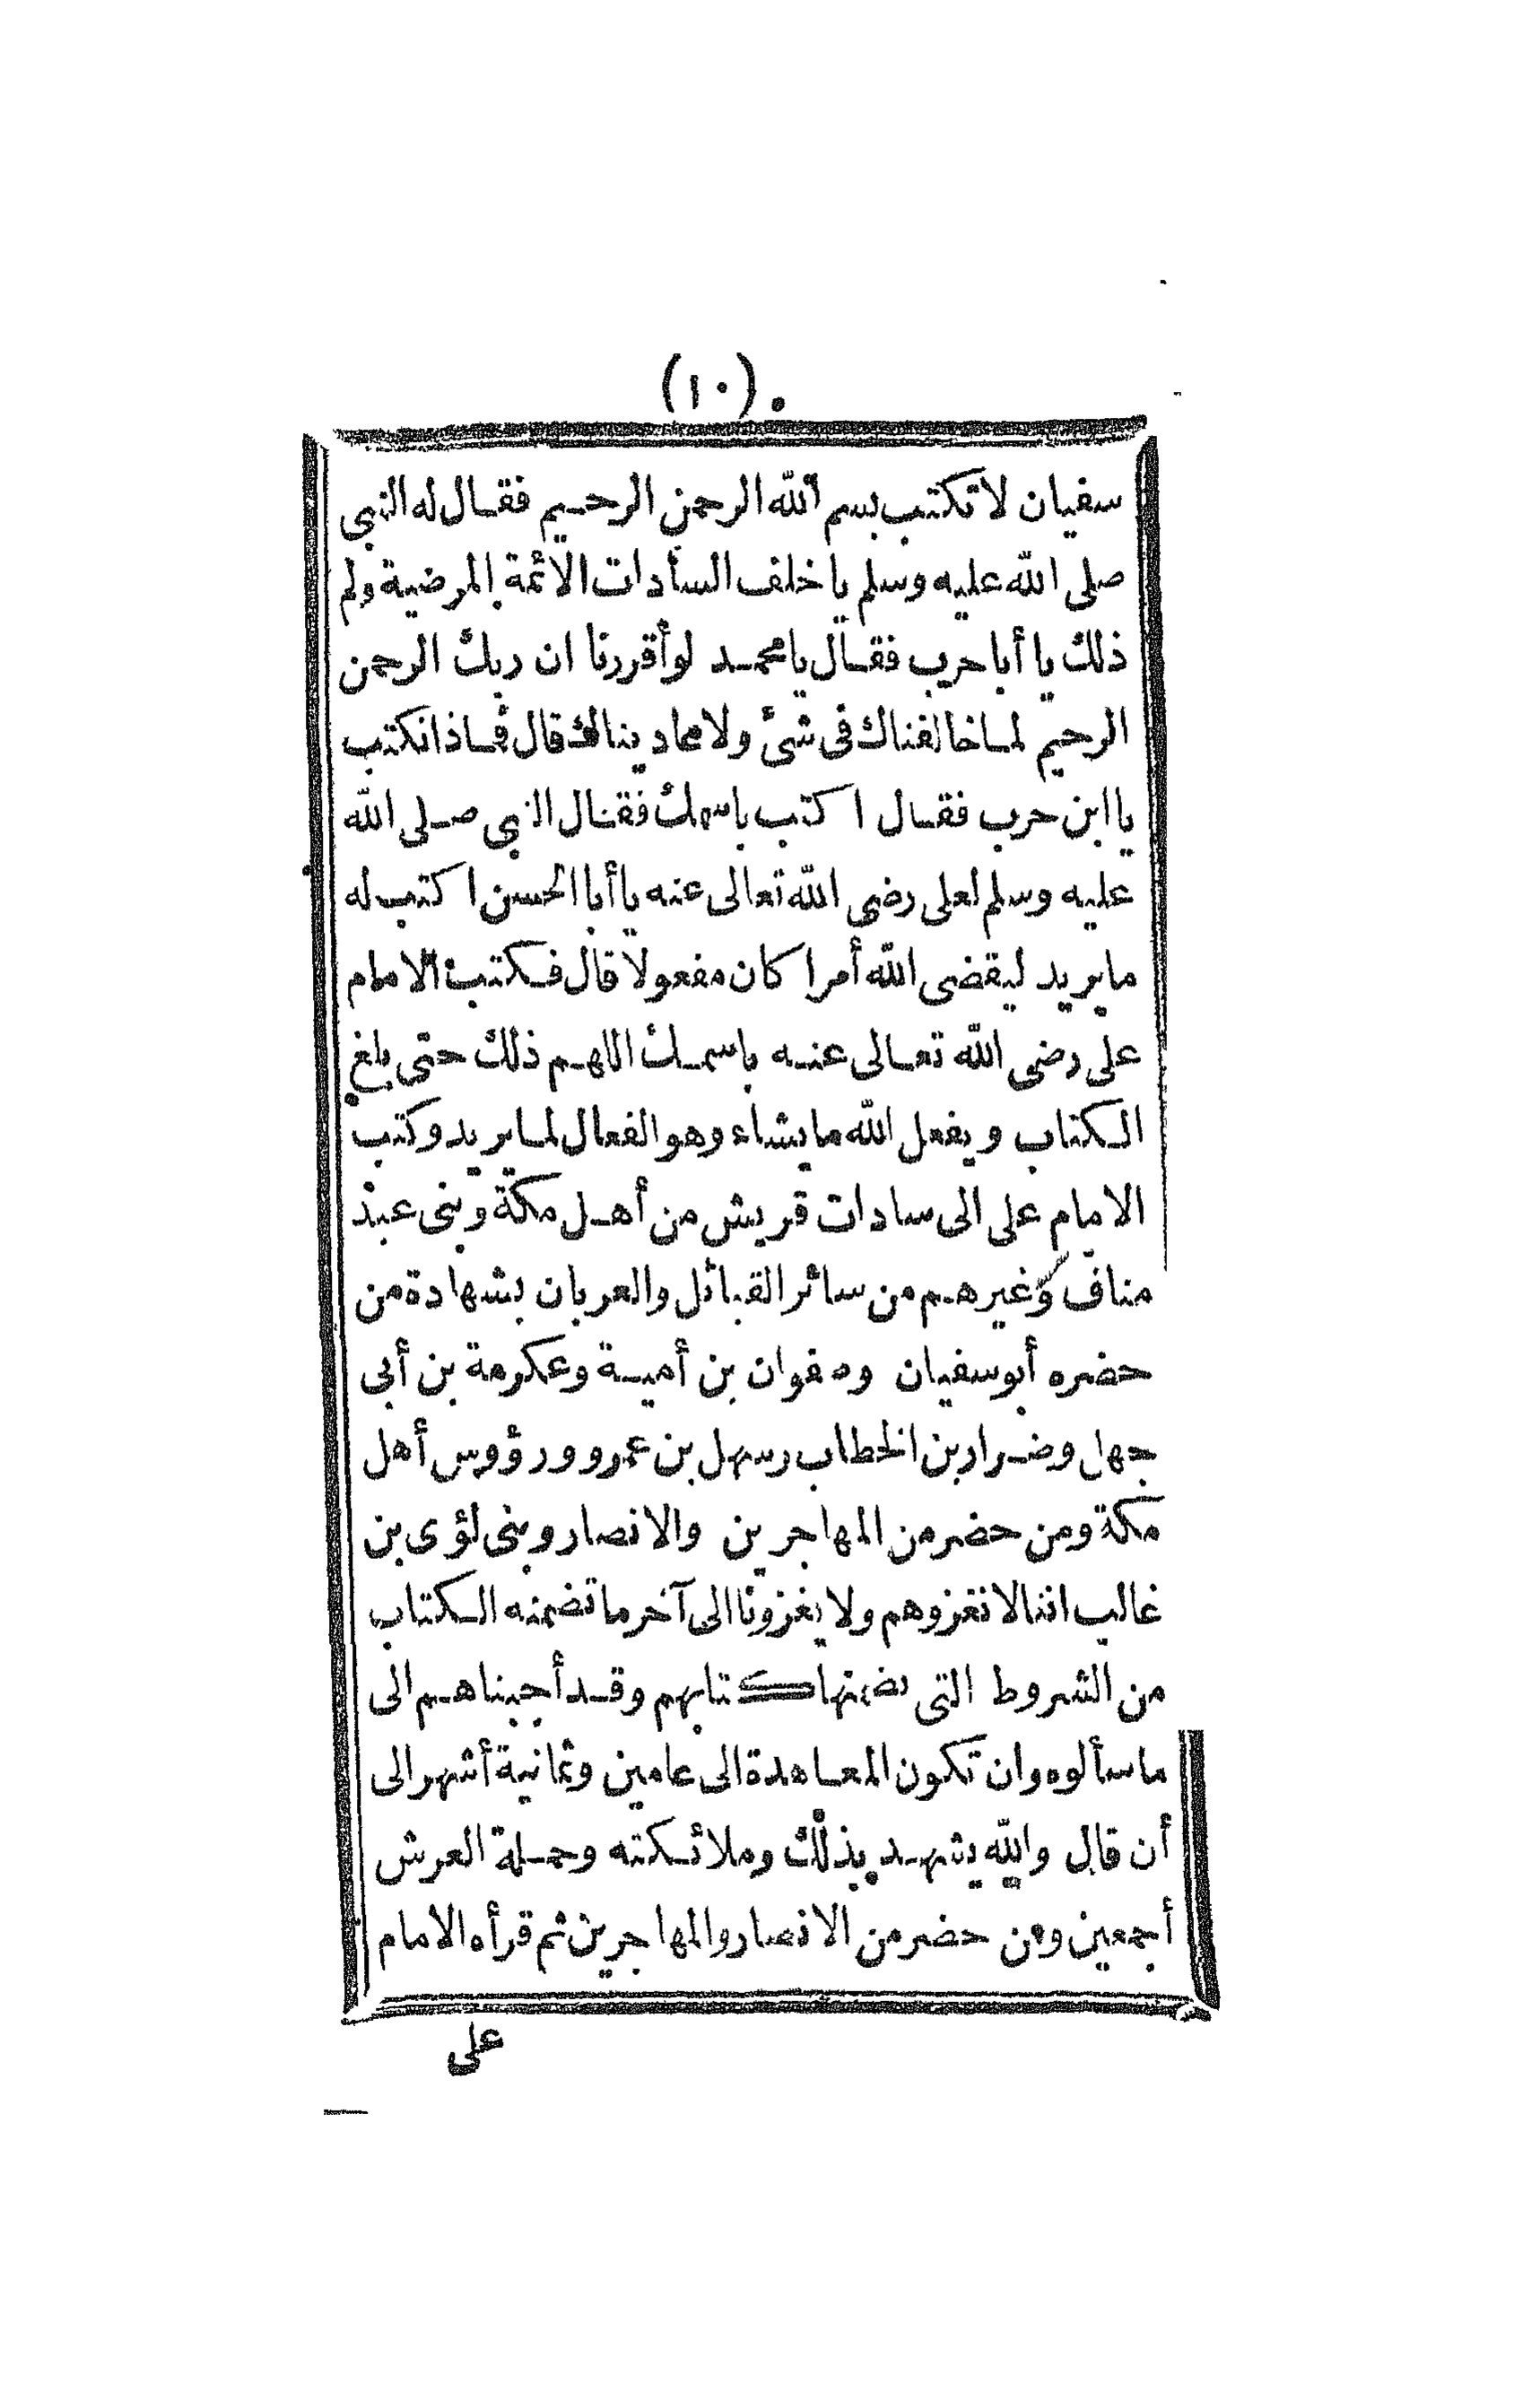 (١٠)
سفيان لا تكتب بسم الله الرحمن الرحيم فقال له النبي
صلى الله عليه وسلم يا خلف السادات الائمة المرضية ولم
ذلك يا أبا حرب فقال يا محمد لو أقررنا ان ربك الرحمن
الرحيم لما خالفناك فى شئ ولا عاديناك قال فماذا نكتب
يا ابن حرب فقال اكتب باسمك فقال النبي صلى الله
عليه وسلم لعلى رضى الله تعالى عنه يا أبا الحسن اكتب له
ما يريد ليقضى الله أمرا كان مفعولا قال فكتب الامام
على رضى الله تعالى عنه باسمك اللهم ذلك حتى بلغ
الكتاب ويفعل الله ما يشاء وهو الفعال لما يريد وكتب
الامام على الى سادات قريش من أهل مكة وبنى عبد
مناف وغيرهم من سائر القبائل والعربان بشهادة من
حضره أبو سفيان وصفوان بن أمية وعكرمة بن أبى
جهل وضرار بن الخطاب وسهل بن عمرو ورؤوس أهل
مكة ومن حضر من المهاجرين والانصار وبنى لؤى بن
غالب اننا لا نغزوهم ولا يغزونا الى آخر ما تضمنه الكتاب
من الشروط التى تضمنها كتابهم وقد أجبناهم الى
ما سألوه وان تكون المعاهدة الى عامين وثمانية أشهر الى
أن قال والله يشهد بذلك وملائكته وحملة العرش
أجمعين ومن حضر من الانصار والمهاجرين ثم قرأه الامام
على